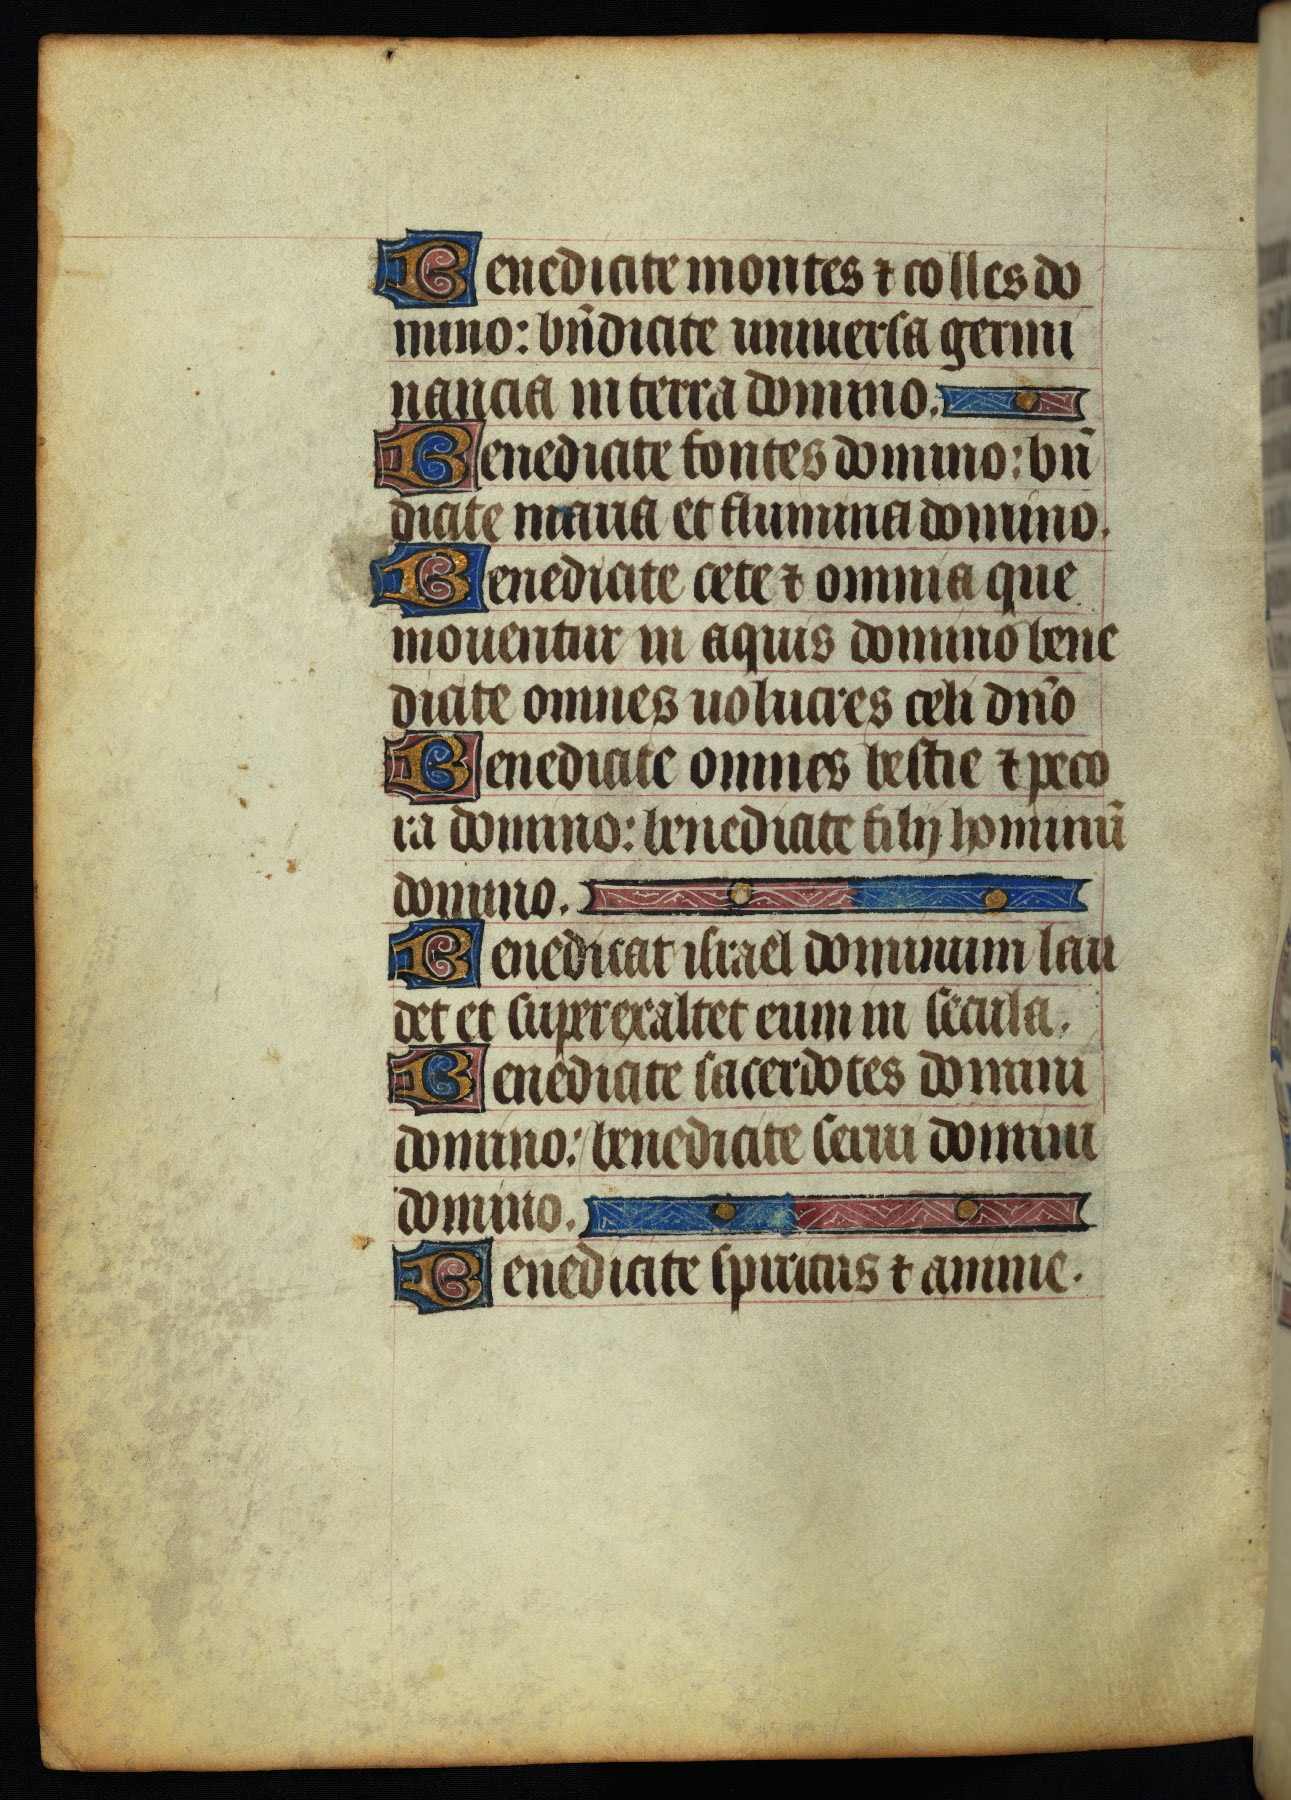 Benedicite montes ⁊ colles do
mino: bn̄dicite uniuersa germi
nancia in terra domino.
Benedicite fontes domino: bn̄
dicite maria et flumina domino.
Benedicite cete ⁊ omnia que
mouentur in aquis domino bene
dicite omnes uolucres celi dn̄o
Benedicite omnes bestie ⁊ peco
ra domino: benedicite filij hominū
domino.
Benedicat israel dominum lau
det et superexaltet eum in secula.
Benedicite sacerdotes domini
domino: benedicite serui domini
domino.
Benedicite spiritus ⁊ anime.